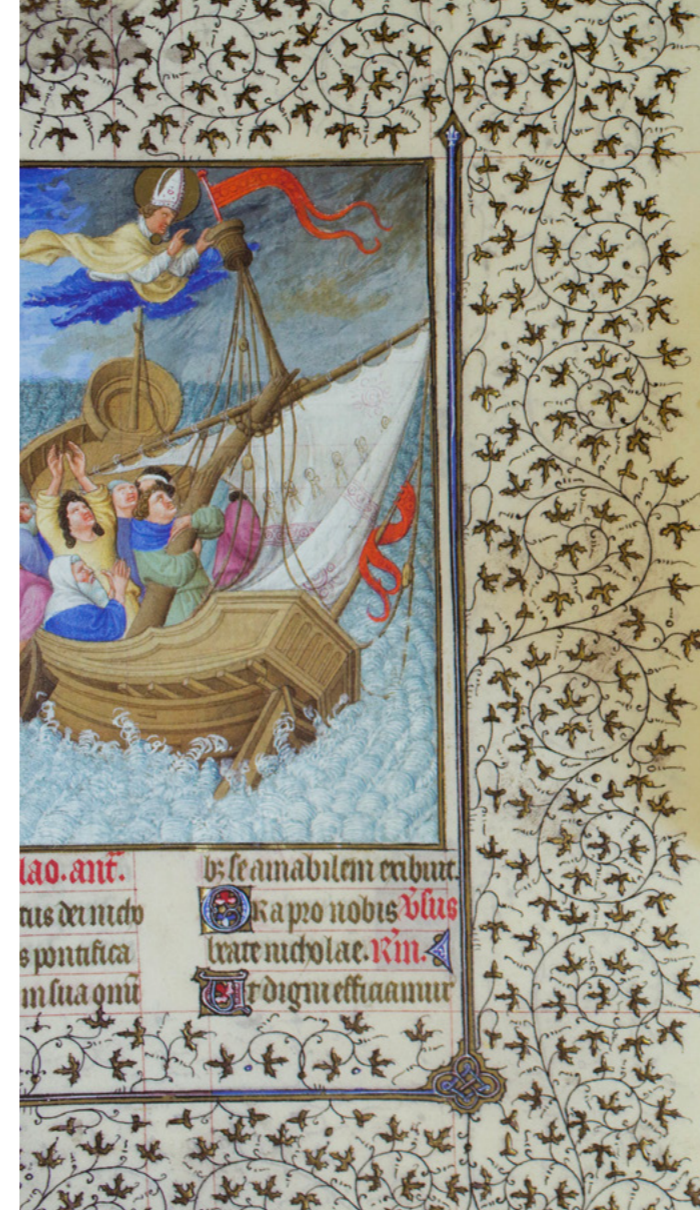 lao. ant̄.
tus dei nicho
s pontifica
in sua om̄i
bꝫ se amabilem exibuit.
Ora pro nobis v̄sus
beate nicholae. R̄m.
Ut digni efficiamur